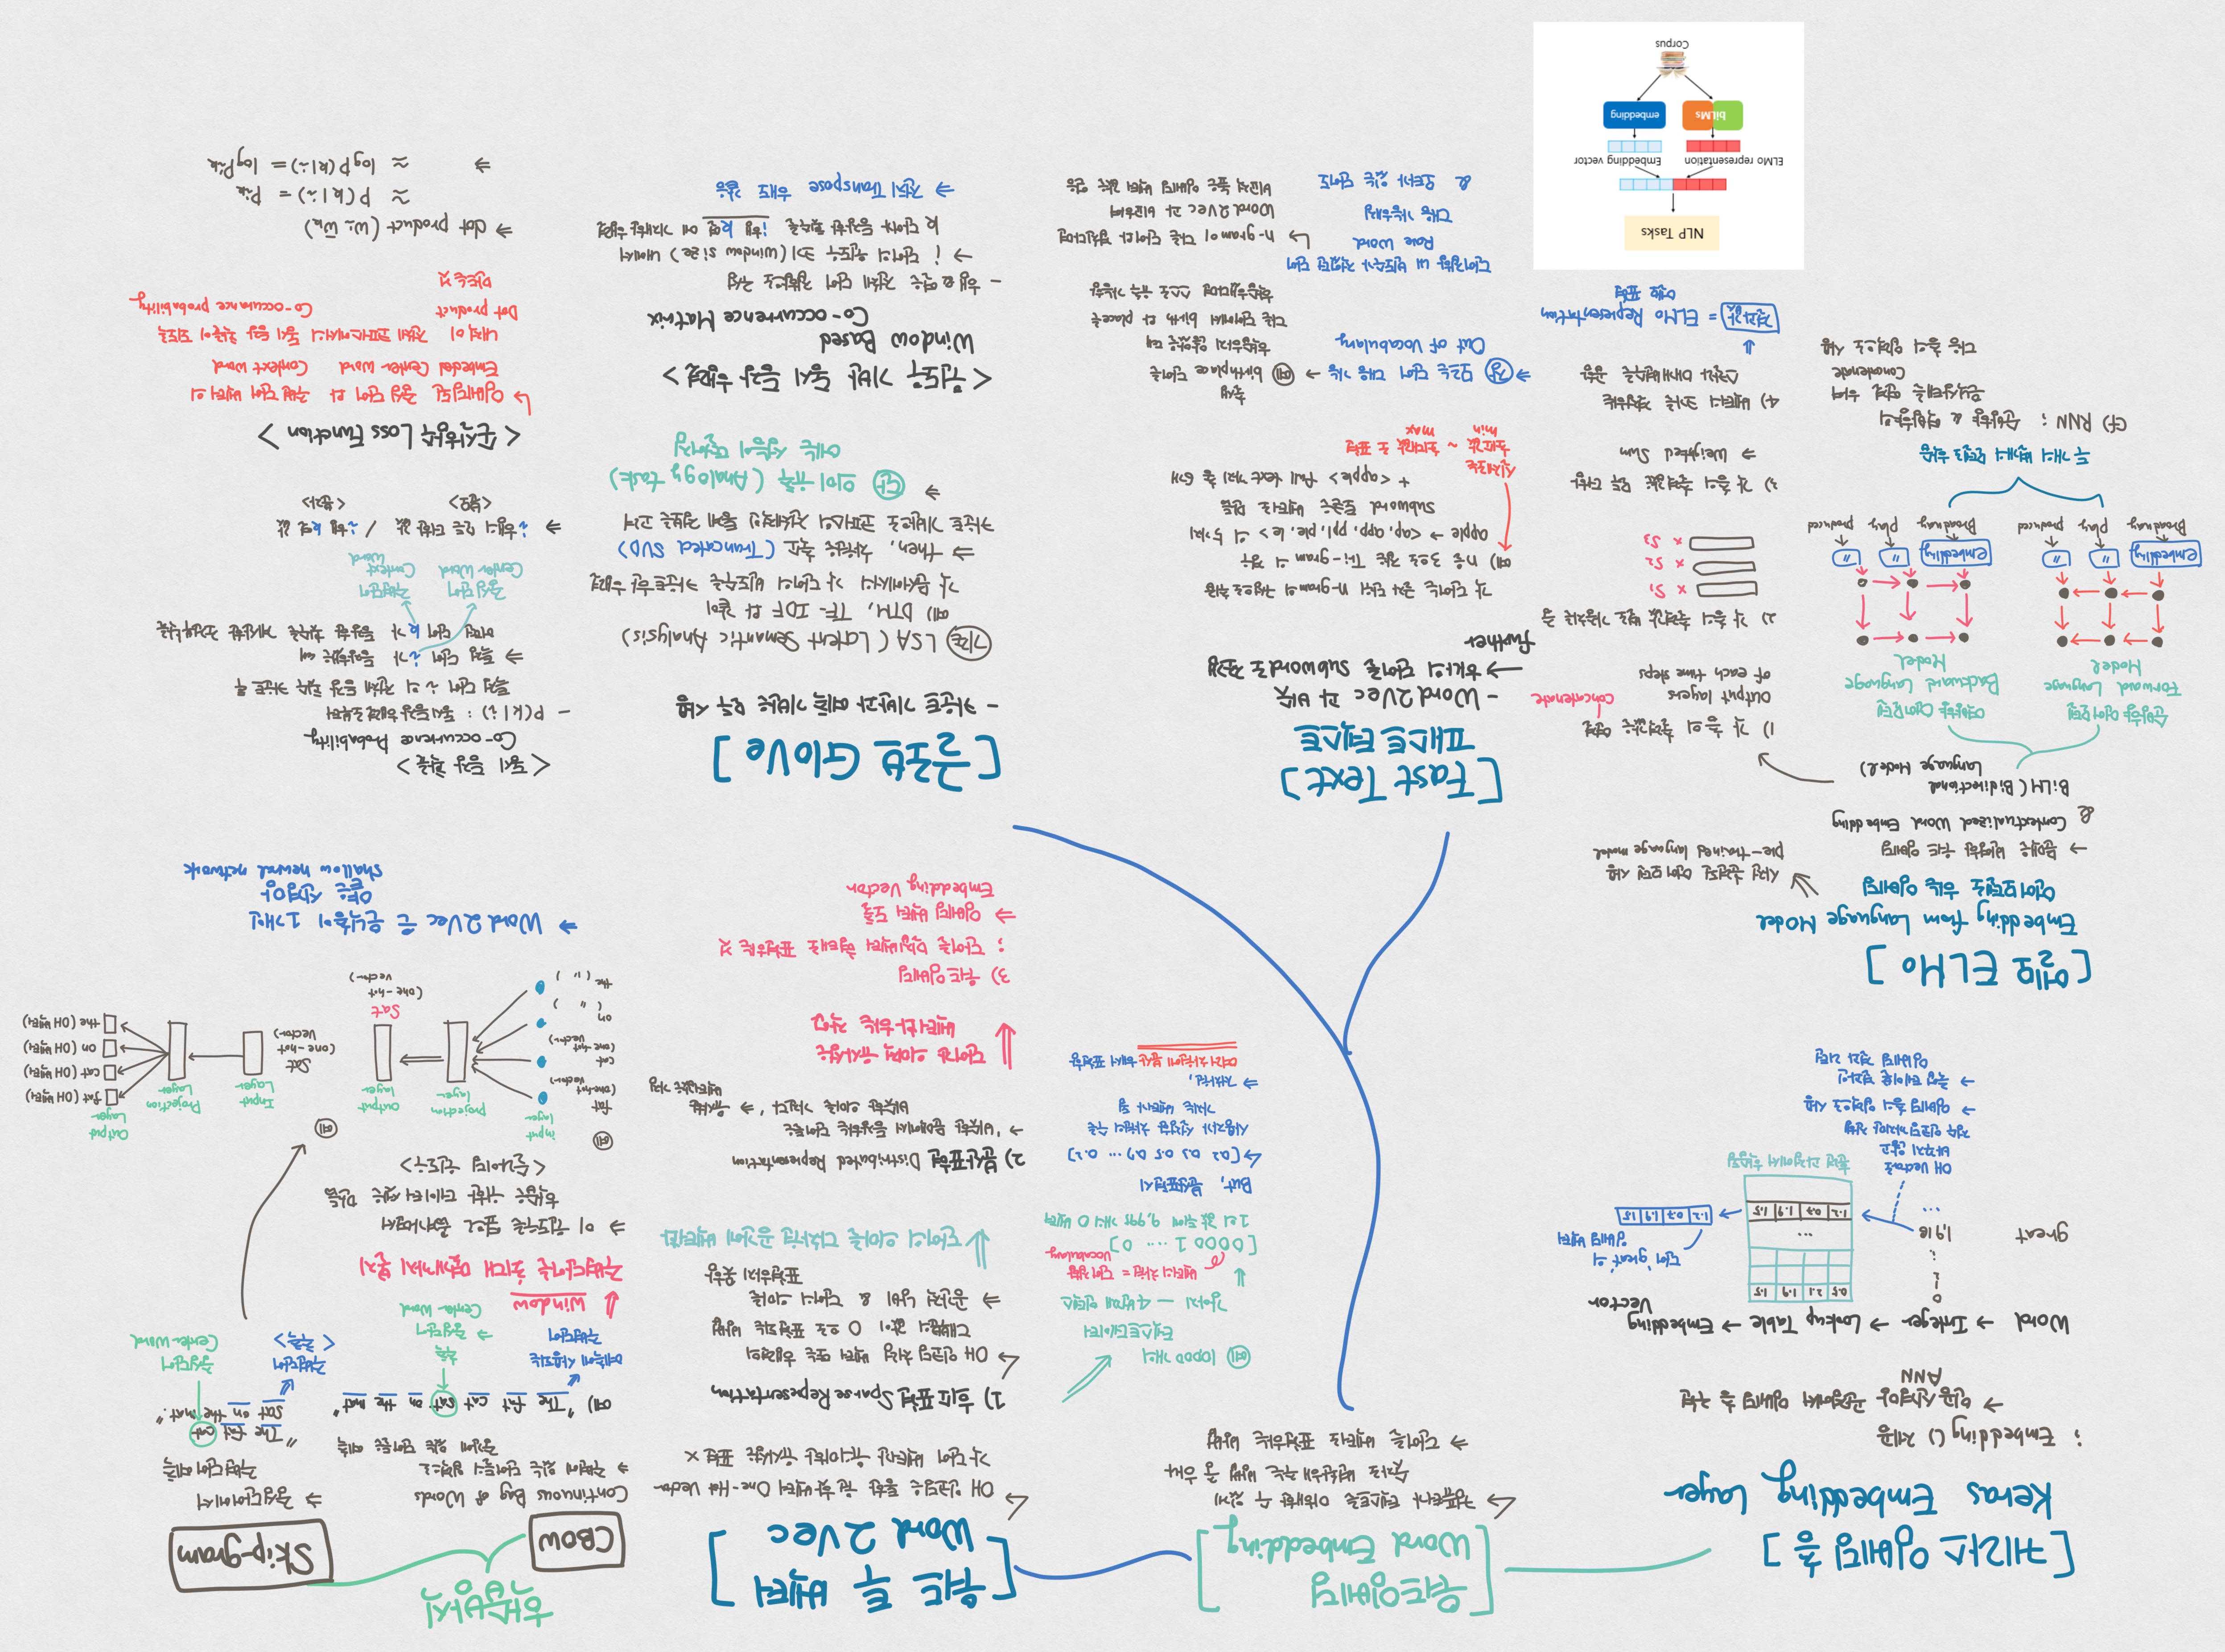 [케라스 임베딩 층]
Keras Embedding Layer
; Embedding() 제공
→ 인공신경망 관점에서 임베딩 층 구현
ANN
Word → Integer → Lookup Table → Embedding Vector
0
1
great
1,918
...
0.5 2.1 1.9 1.5
...
1.2 0.7 1.9 1.5
1.2 0.7 1.9 1.5
단어 'great'의
임베딩 벡터
훈련 과정에서 학습됨
OH Vector로
바꾸지 않고
정수 인코딩까지만 진행
→ 임베딩 층의 입력으로 사용
→ 룩업 테이블 결과인
임베딩 결과 리턴
[워드임베딩
Word Embedding]
↳ 컴퓨터가 텍스트를 이해할 수 있게
숫자로 변환해 주는 방법 중 하나
⇒ 단어를 벡터로 표현하는 방법
예 10000개의
텍스트데이터
강아지 — 4번째 인덱스
벡터의 차원 = 단어 집합
Vocabulary
[00001 ··· 0]
1의 값 뒤에 9,995개의 0 벡터
But, 분산표현시
↳ [0.2 0.3 0.5 0.7 ··· 0.2]
사용자가 설정한 차원의 수를
가지는 벡터가 됨
⇒ 저차원,
여러차원에 분산해서 표현함
[워드 투 벡터
Word 2Vec]
↳ OH 인코딩을 통한 원 핫 벡터 One-Hot Vector
각 단어 벡터간 유의미한 유사성을 표현 X
1) 희소표현 Sparse Representation
↳ OH 인코딩처럼 벡터 또는 행렬의
대부분의 값이 0으로 표현되는 방법
⇒ 공간적 낭비 & 단어의 의미를
표현하지 못함
⇓ 단어의 의미를 다차원 공간에 벡터화
2) 분산표현 Distributed Representation
→ '비슷한 문맥에서 등장하는 단어들은
비슷한 의미를 가진다' ⇒ 유사한
벡터값을 가짐
⇓ 단어간 의미적 유사성을
벡터화 하는 작업
3) 워드임베딩
; 단어를 밀집벡터 형태로 표현하는 것
⇒ 임베딩 벡터 도출
Embedding Vector
학습방식
CBOW
Continuous Bag of Words
⇒ 주변에 있는 단어들의 입력으로
중간에 있는 단어들을 예측
예) "The fat cat sat on the mat"
예측에 사용되는
주변단어
추측
⇒ 중심단어
Center Word
⇓ Window
주변단어는 최대 몇개까지 볼지
⇒ 이 윈도우를 옆으로 옮겨가면서
학습을 위한 데이터 셋을 만듦
<슬라이딩 윈도우>
예
input layer
projection layer
output layer
fat
(one-hot vector)
cat
(one-hot vector)
on
( " )
the ( " )
Sat
(one-hot vector)
Skip-gram
⇒ 중심단어에서
주변단어 예측
"The fat cat
sat on the mat."
주변단어
<추측>
중심단어
Center Word
예
Input Layer
Projection Layer
Output Layer
Sat
(one-hot Vector)
fat (OH 벡터)
cat (OH 벡터)
on (OH 벡터)
the (OH 벡터)
⇒ Word 2Vec은 은닉층이 1개인
얕은 신경망
shallow neural network
[엘모 ELMo]
Embedding from Language Model
언어모델로 하는 임베딩
사전 훈련된 언어 모델 사용
pre-trained language model
→ 문맥을 반영한 워드 임베딩
& Contextualized Word Embedding
BiLM (Bidirectional
Language Model)
순방향 언어모델
Forward Language
Model
역방향 언어모델
Backward Language
Model
embedding " "
Broadway play produced
embedding " "
Broadway play produced
두개의 별개의 모델로 학습
cf) RNN ; 순방향 & 역방향의
은닉상태를 연결 하여
Concatenate
다음 층의 입력으로 사용
1) 각 층의 출력값을 연결
Concatenate
output layers
of each time steps
2) 각 층의 출력값 별로 가중치를 줌
× S1
× S2
× S3
3) 각 층의 출력값을 모두 더함
⇒ Weighted Sum
4) 벡터의 크기를 결정하는
스칼라 매개변수를 곱함
⇓
결과값 = ELMo Representation
엘모 표현
NLP Tasks
ELMo representation
Embedding vector
biLMs
embedding
Corpus
[Fast Text]
패스트텍스트
- Word 2Vec과 비슷
→ 하나의 단어를 Subword로 쪼갬
further
각 단어는 글자 단위 n-gram의 구성으로 취급
예) n을 3으로 잡은 Tri-gram의 경우
apple → <ap, app, ppl, ple, le> 의 5가지
subword 토큰을 벡터로 만듦
+ <apple> full text 까지 총 6개
실제로는
최소값 ~ 최대값 으로 표현
min max
⇒ 장 모르는 단어 대응 가능 →
Out of Vocabulary
출생
예 birthplace 단어를
학습하지 않았을 때
다른 단어에서 birth 와 place를
학습했다면 스스로 유추 가능함
단어집합 내 빈도수가 적었던 단어
Rare Word
대응 가능해짐
& 오타가 있는 단어도
↳ n-gram이 다른 단어와 겹친다면
Word 2Vec과 비교하여
비교적 높은 임베딩 벡터 값을 얻음
[글로브 GloVe]
- 카운트 기반과 예측 기반을 모두 사용
기존 LSA (Latent Semantic Analysis)
예) DTM, TF-IDF 와 같이
각 문서에서의 각 단어의 빈도수를 카운트한 행렬
⇒ then, 차원을 축소 (Truncated SVD)
카운트 기반으로 코퍼스의 전체적인 통계 정보를 고려
⇒ 단 의미 유추 (Analogy task)
에는 성능이 떨어짐
<윈도우 기반 동시 등장 행렬>
Window Based
Co-occurrence Matrix
- 행&열을 전체 단어 집합으로 구성
→ i 단어의 윈도우 크기(Window size) 내에서
k 단어가 등장한 횟수를 i행 k열 에 기재한 행렬
⇒ 전치 Transpose 해도 같음
<동시 등장 확률>
Co-occurrence Probability
- P(k|i) : 동시등장 행렬로부터
특정 단어 i의 전체 등장 횟수 카운트 후
⇒ 특정 단어 i가 등장했을 때
어떤 단어 k가 등장한 횟수를 계산한 조건부확률
중심단어
Center Word
주변단어
Context Word
⇒ i행의 모든 더한 값 / i행 k열 값
<분모> <분자>
<손실함수 Loss Function>
↳ 임베딩된 중심 단어 와 주변 단어 벡터의
Embeded Center Word Context Word
내적이 전체 코퍼스에서의 동시 등장 확률이 되도록
Dot product Co-occurance probability
만드는것
⇒ dot product (wi w̃k)
≈ P(k|i) = Pik
⇒ ≈ log P(k|i) = log Pik